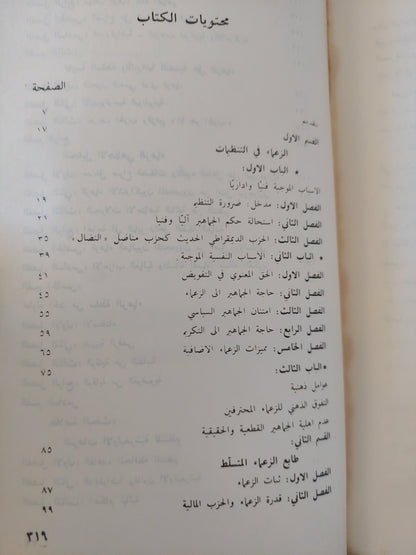 محتويات الكتاب
الصفحة
تقديم ٧
القسم الاول ١٧
الزعماء في التنظيمات
* الباب الاول:
الاسباب الموجبة فنيًا واداريًا
الفصل الاول: مدخل: ضرورة التنظيم ١٩
الفصل الثاني: استحالة حكم الجماهير آليًا وفنيا
الفصل الثالث: الحزب الديمقراطي الحديث كحزب مناضل «النضال» ٣٥
* الباب الثاني: الاسباب النفسية الموجبة: ٣٩
الفصل الاول: الحق المعنوي في التفويض ٤١
الفصل الثاني: حاجة الجماهير الى الزعماء ٤٥
الفصل الثالث: امتنان الجماهير السياسي ٥٥
الفصل الرابع: حاجة الجماهير الى التكريم ٥٩
الفصل الخامس: مميزات الزعماء الاضافية ٦٥
*الباب الثالث: ٧٥
عوامل ذهنية
التفوق الذهني للزعماء المحترفين
عدم اهلية الجماهير القطعية والحقيقية
القسم الثاني: ٨٥
طابع الزعماء المتسلّط
الفصل الاول: ثبات الزعماء ٨٧
الفصل الثاني: قدرة الزعماء والحزب المالية ٩٩
٣١٩